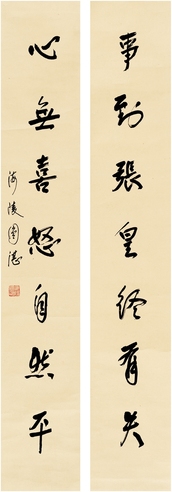 事到張皇終有失
心無喜怒自然平
海陵圉谌